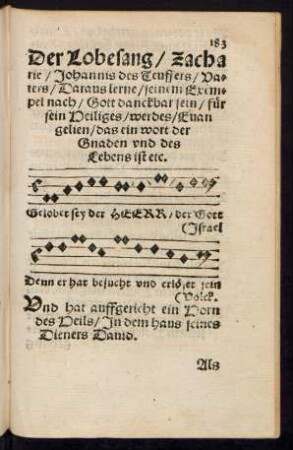 183
Der Lobesang / Zacha
rie / Johannis des Teuffers / Va-
ters / Daraus lerne / seinem Exem-
pel nach / Gott danckbar sein / für
sein heiliges / werdes / Euan
gelien / das ein wort der
Gnaden vnd des
Lebens ist etc.
Gelobet sey der HEERR / der Gott
(Israel
Denn er hat besucht vnd erlöset sein
(Volck.
Vnd hat auffgericht ein Horn
des Heils / In dem haus seines
Dieners Dauid.
Als